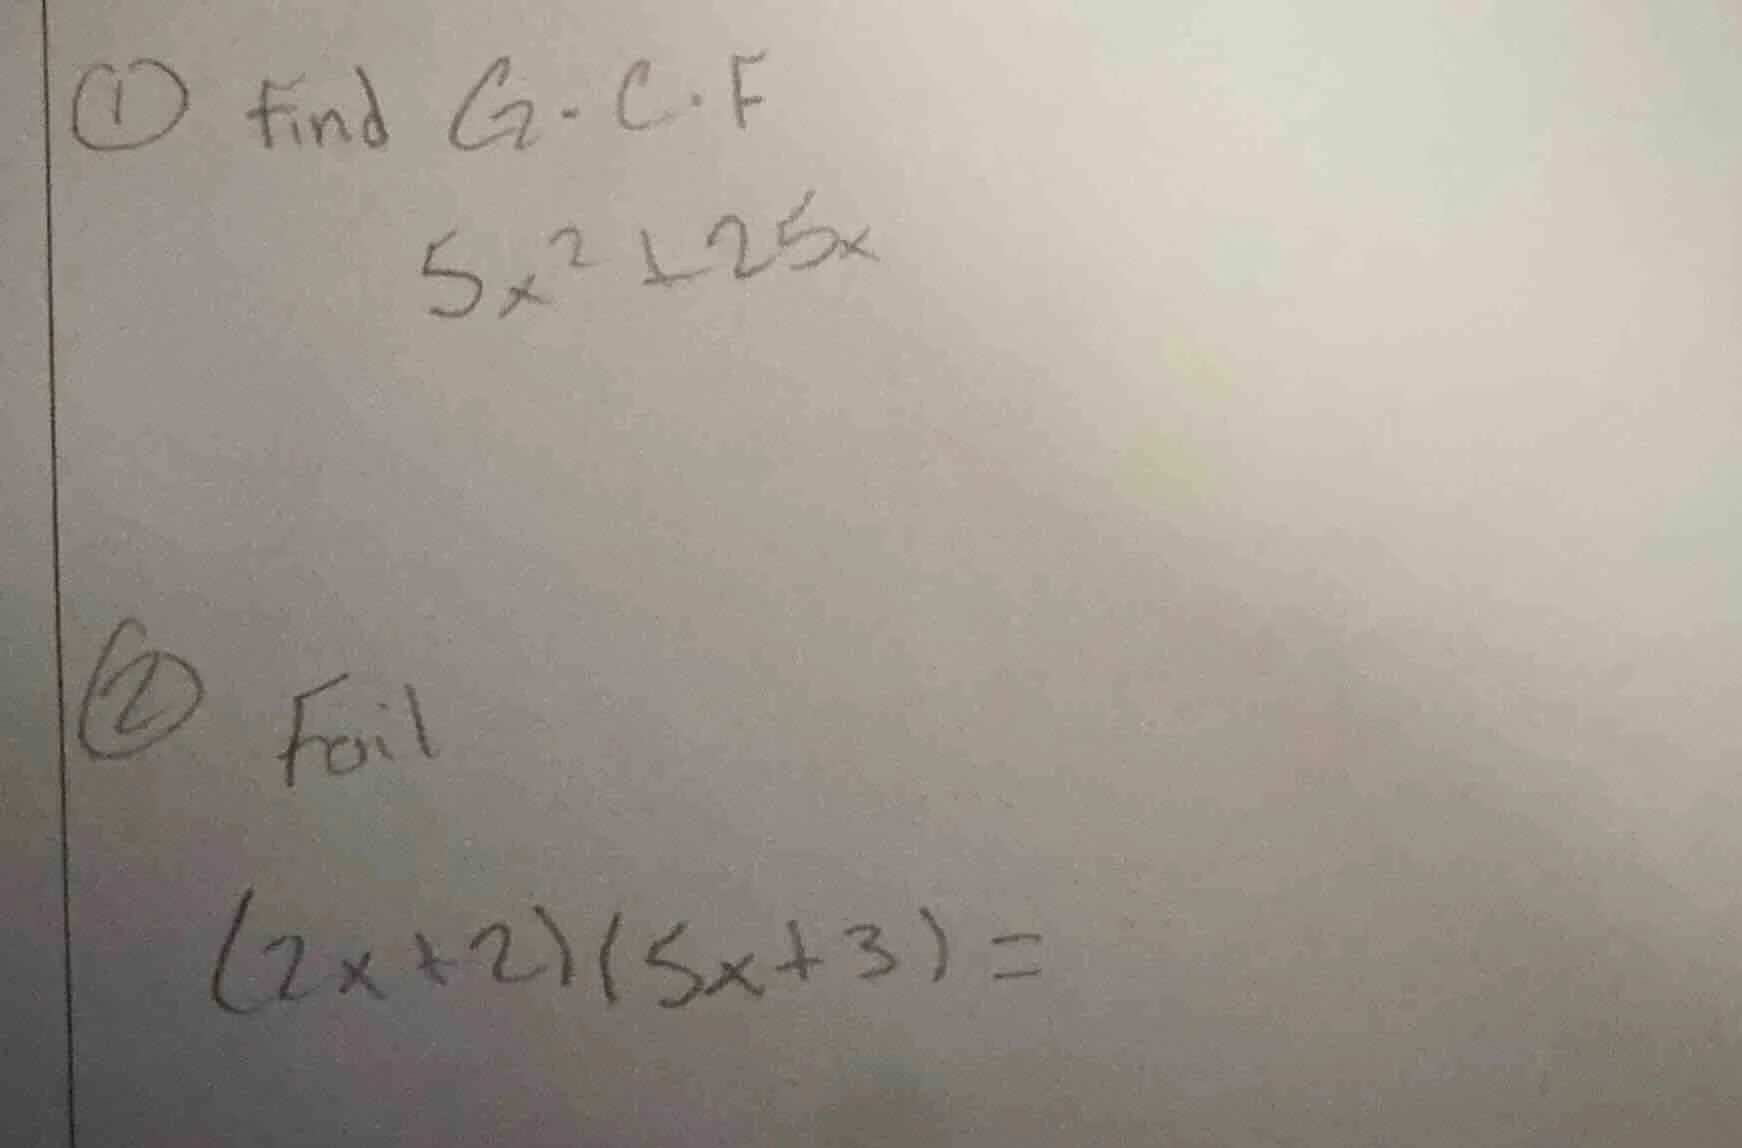 ① Find G.C.F
5x² + 25x
② Foil
(2x+2)(5x+3)=